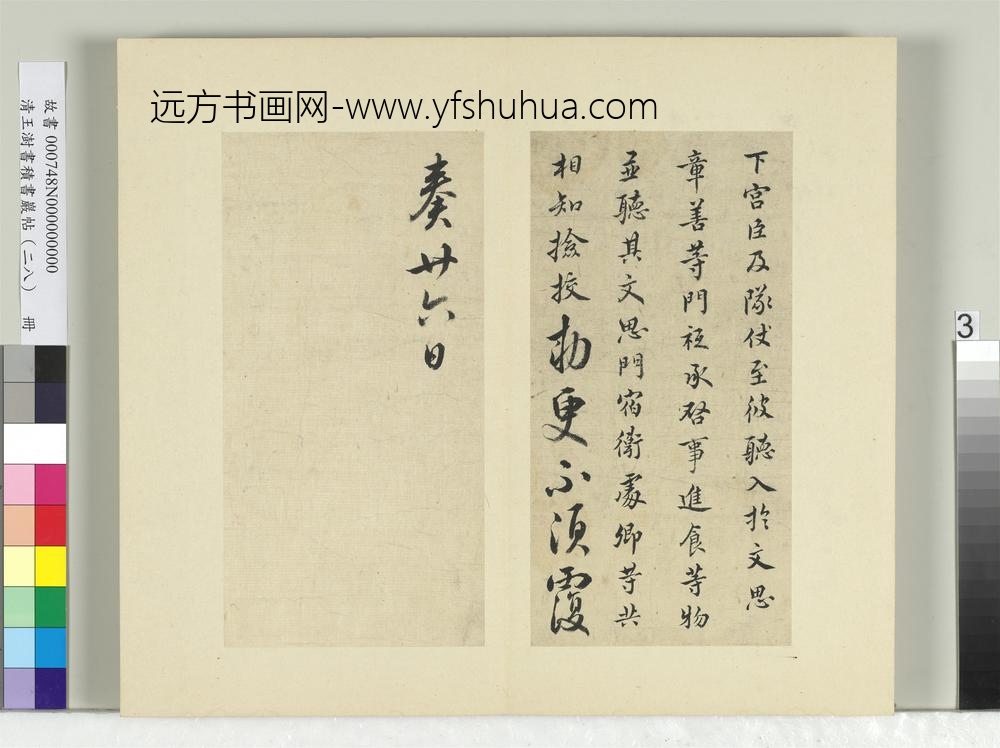 远方书画网-www.yfshuhua.com
故書 000748N000000000
清王澍書積書巖帖（二八） 冊
3
下宮臣及隊仗至彼聽入於文思
章善等門祗承啓事進食等物
並聽其文思門宿衛處卿等共
相知撿挍勅更不須覆
奏廿六日